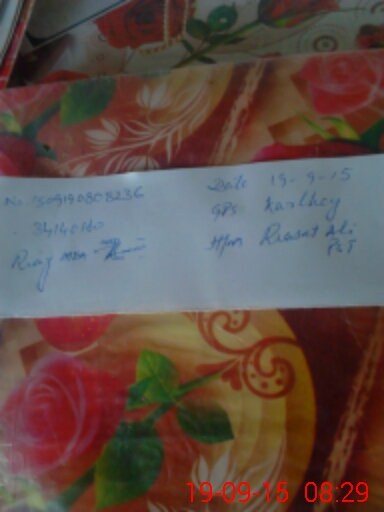 No. 1509190808236
- 34140140
Date 19-9-15
GPS Kaslhey
Hfm Riasat Ali
PST
19-09-15 08:29